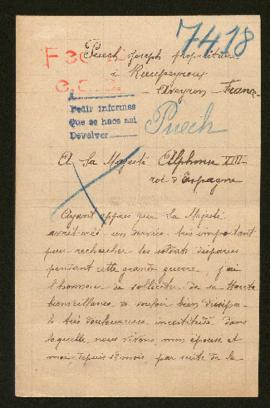 7418
Puech Joseph propriétaire
à Rieupeyroux
Aveyron France
Pedir informes
Que se haos
Devolver
Puech
A Sa Majesté Alphonse XIII
roi d'Espagne
Ayant appris que Sa Majesté
avait créé un service très important
pour rechercher les soldats disparus
pendant cette grande guerre, j'ai
l'honneur de solliciter de sa Haute
bienveillance, de vouloir bien dissiper
la très douloureuse incertitude dans
laquelle nous vivons, mon épouse et
moi depuis mois par suite de la